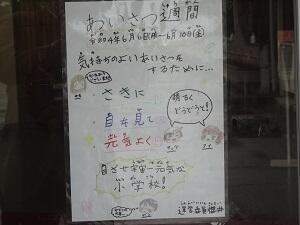 あいさつ週間
令和4年6月6日(月)~6月10日(金)
気持ちのよいあいさつを
するために…
さきに
目を見て
元気よく
明るく
どうどうと!
目させ宇宙一元気な
小学校!
運営委員会